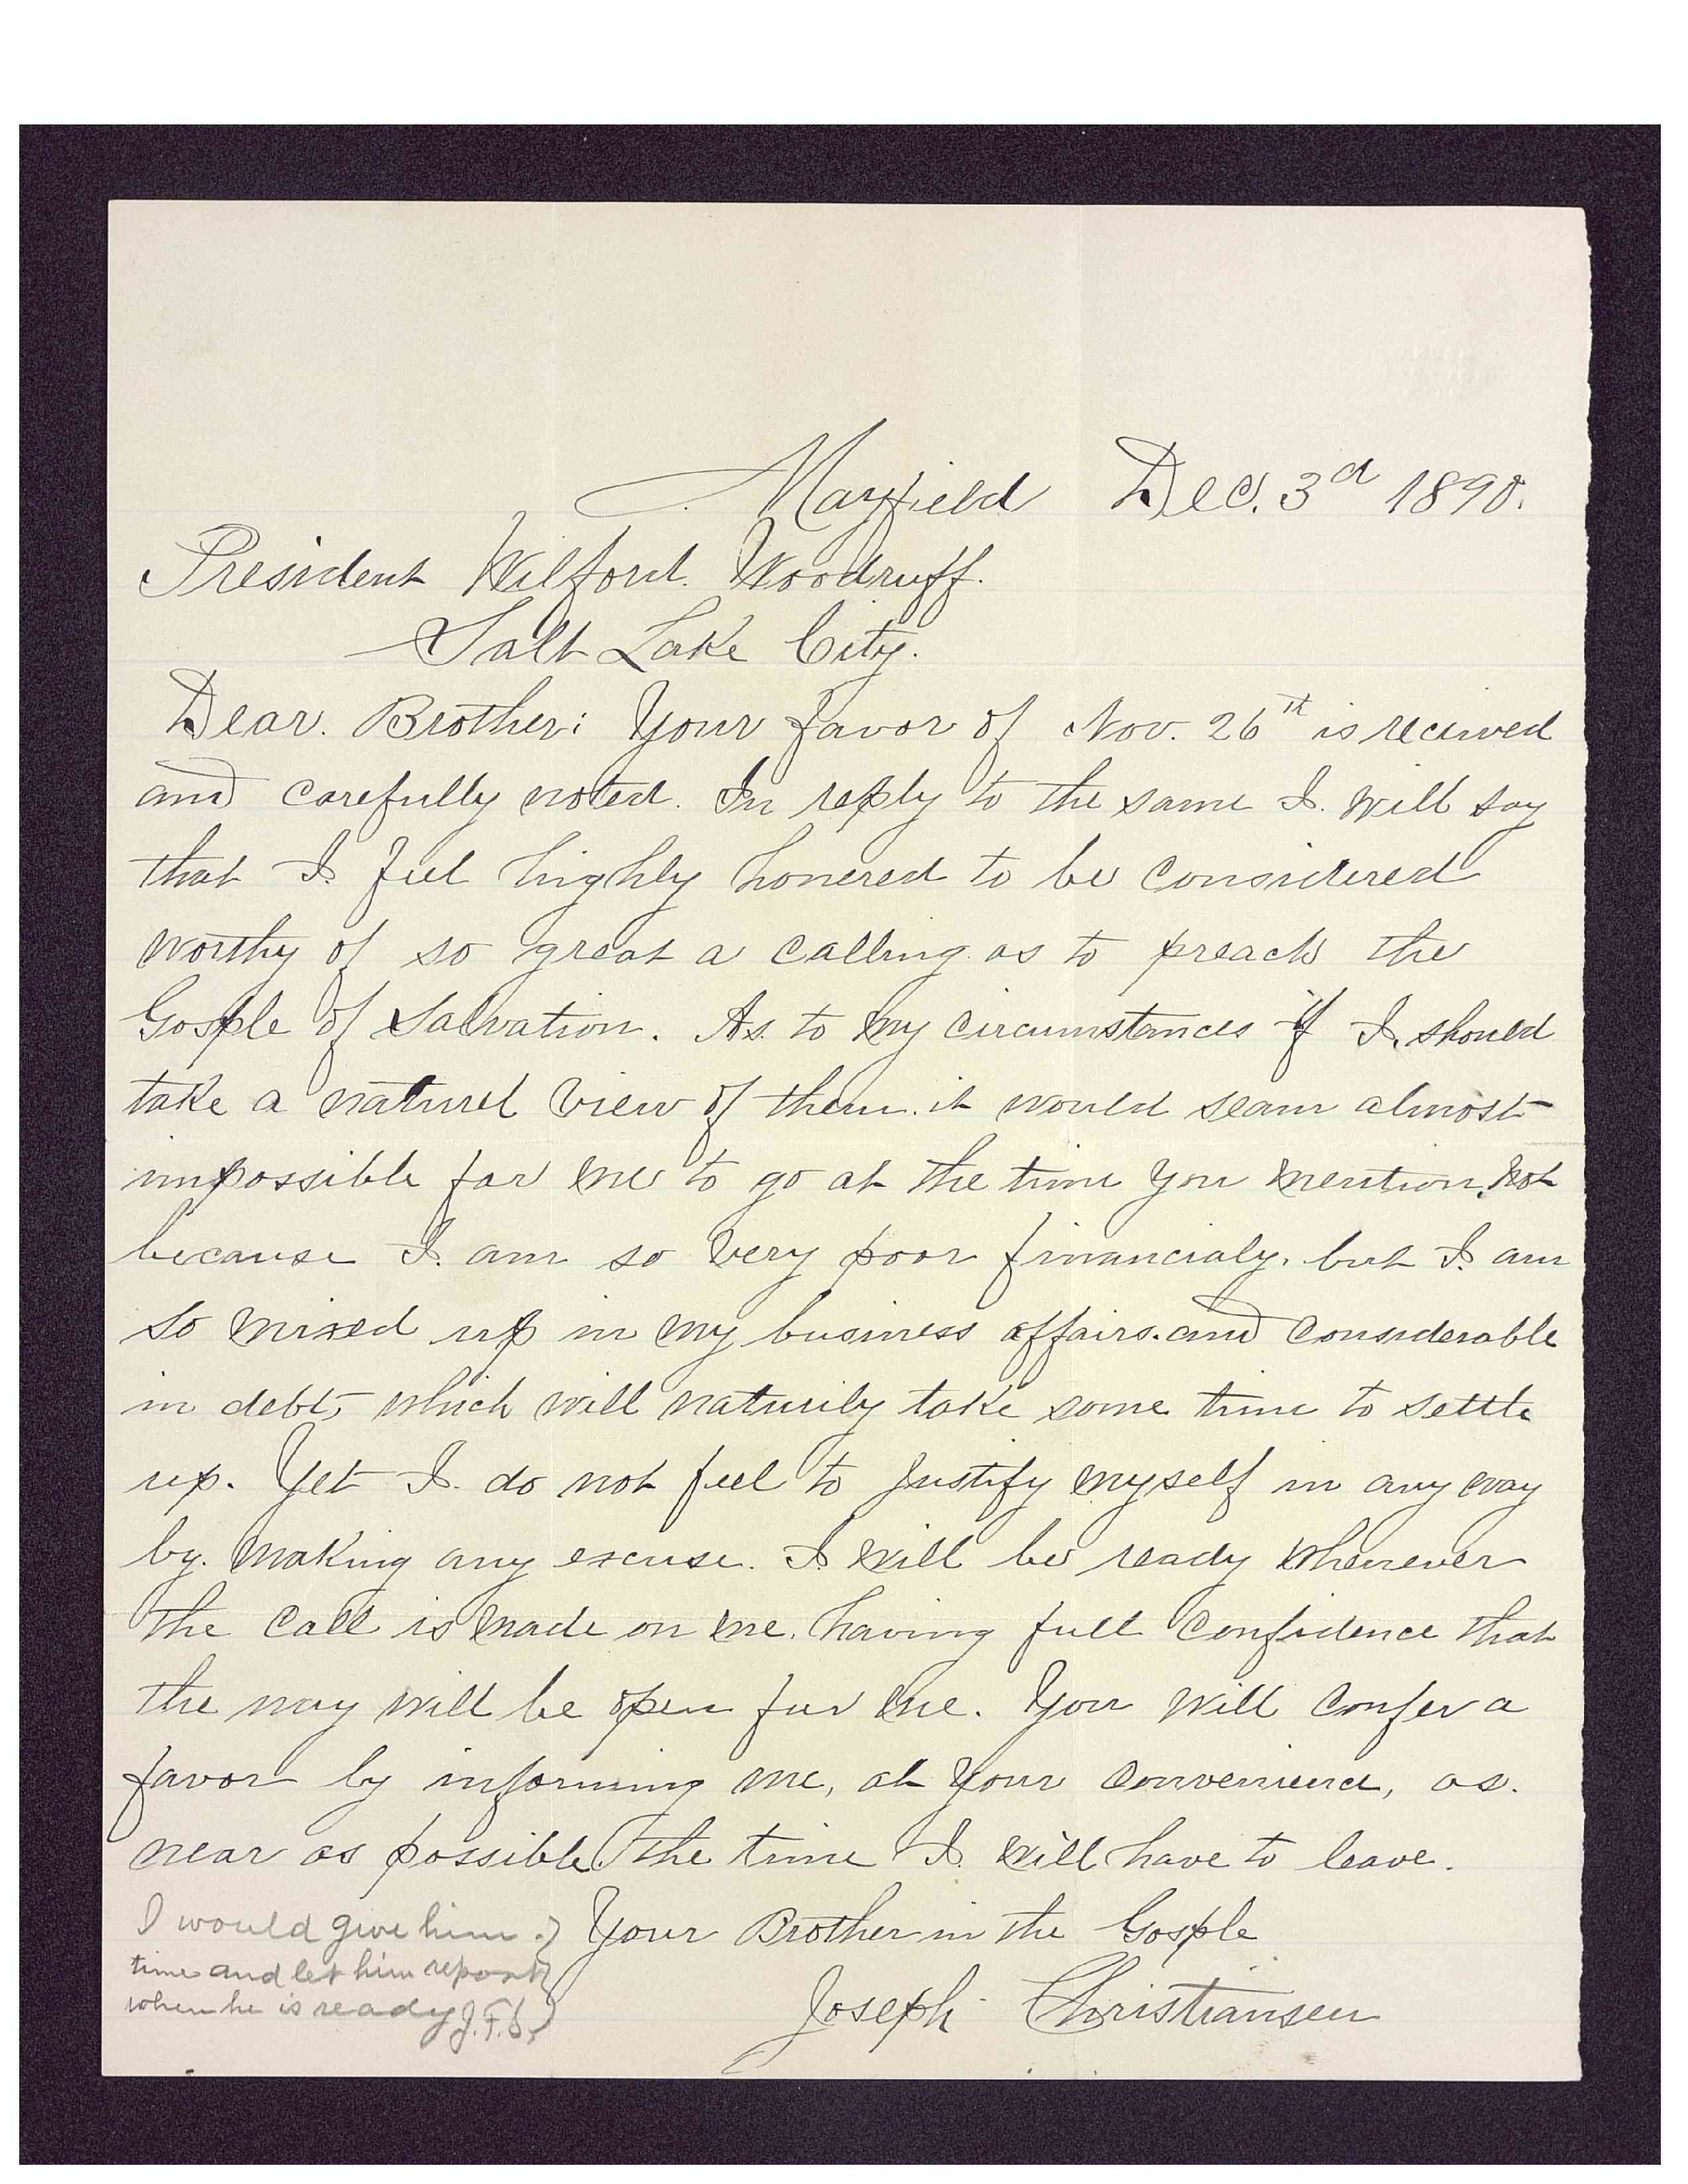 Mayfield Dec. 3d 1890.
President Wilford. Woodruff.
Salt Lake City.
Dear. Brother: Your favor of Nov. 26th is received
and carefully noted. In reply to the same I. will say
that I. feel highly honered to be considered
worthy of so great a calling as to preach the
Gosple of Salvation. As. to my circumstances if I. should
take a naturel view of them. it would seam almost
impossible for me to go at the time you mention, not
because I. am so very poor financialy, but I. am
so mixed up in my business affairs. and considerable
in debt, which will naturily take some time to settle
up. Yet I. do not feel to justify myself in any way
by. making any excuse. I will be ready whenever
the call is made on me. having full confidence that
the way will be open for me. You will confer a
favor by informing me, at your convenience, as.
near as possible. the time I. will have to leave.
Your Brother in the Gosple
Joseph Christiansen
I would give him
time and let him report
when he is ready J.F.S.